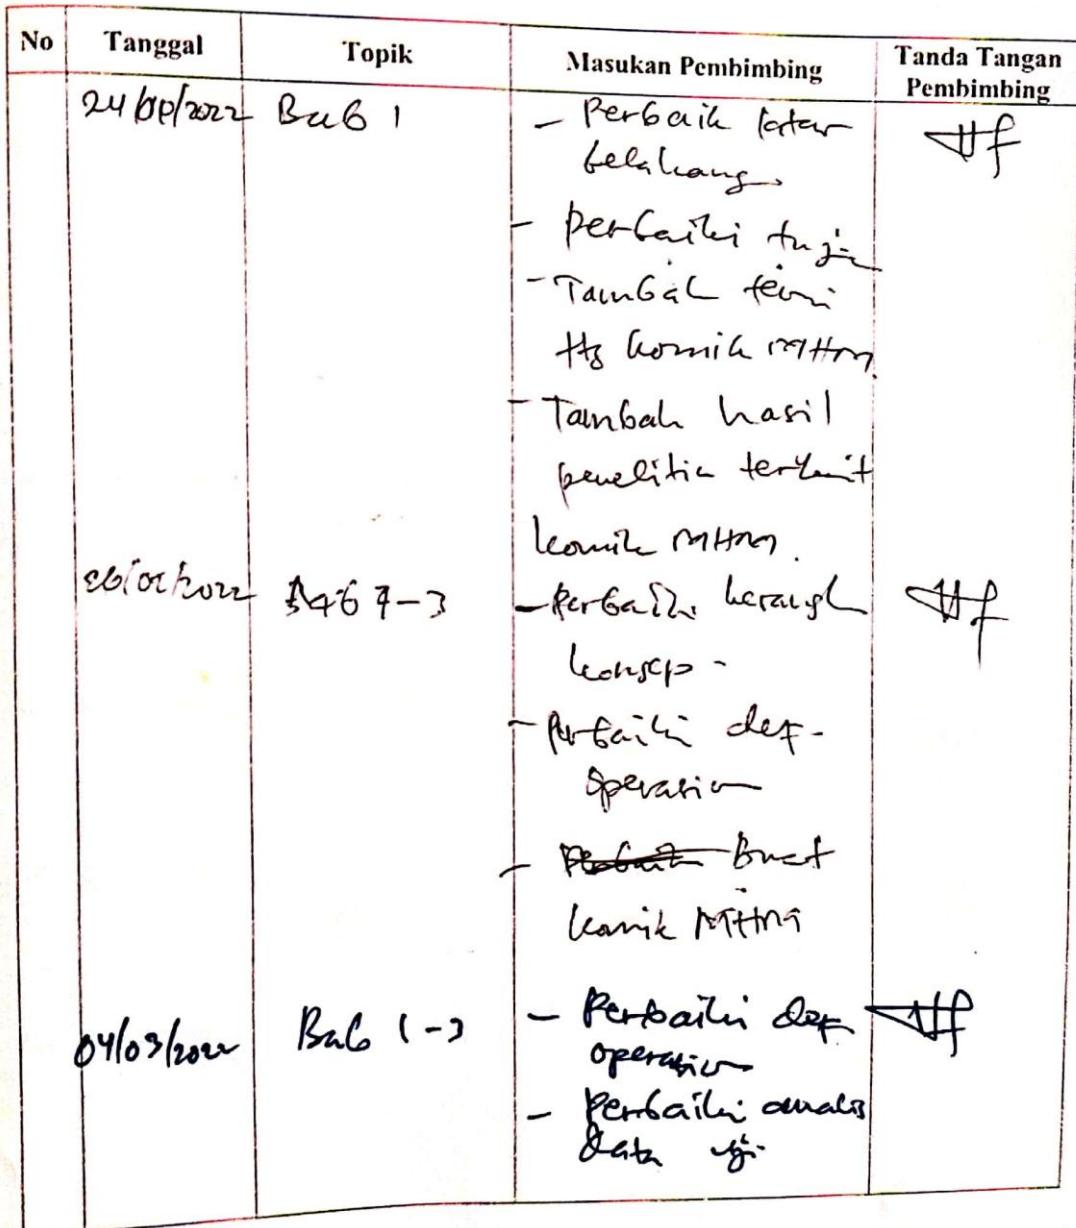 No Tanggal Topik Masukan Pembimbing Tanda Tangan Pembimbing
Bab 1 - Perbaik latar
belakang
- perbaiki
- Tambah teori
ttg komik MHM.
- Tambah hasil
penelitian terkait
komik MHM.
1-3 - Perbaiki
konsep -
- Perbaiki def-
operasion
- Buat
komik MHM
04/03/2022 Bab 1-3 - Perbaiki def
operasion
- Perbaiki analis
data uji